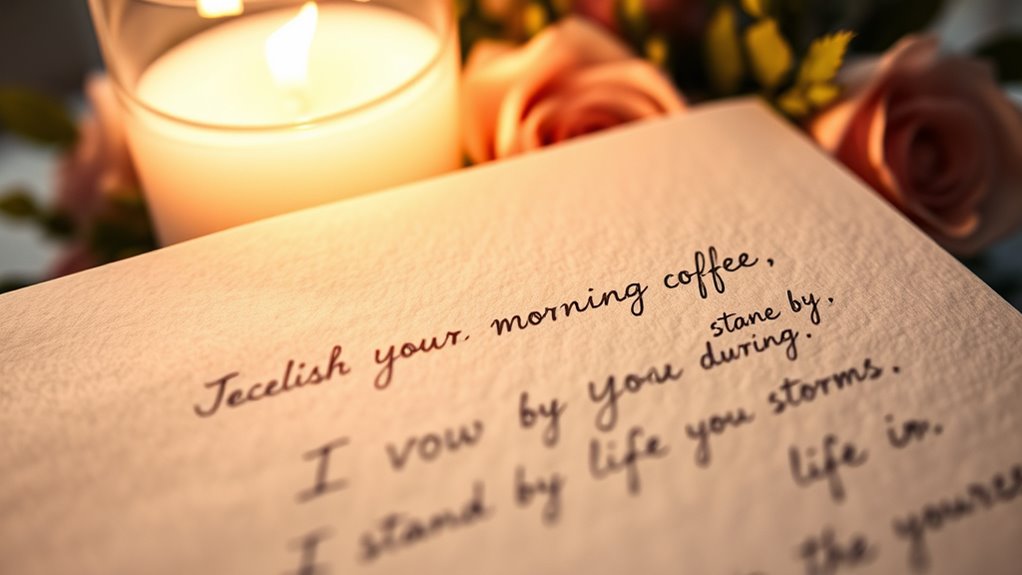 Jecelish your. morning coffee,
stane by.
I vow by you during.
I stand by life you storms.
life in.
I the yourer